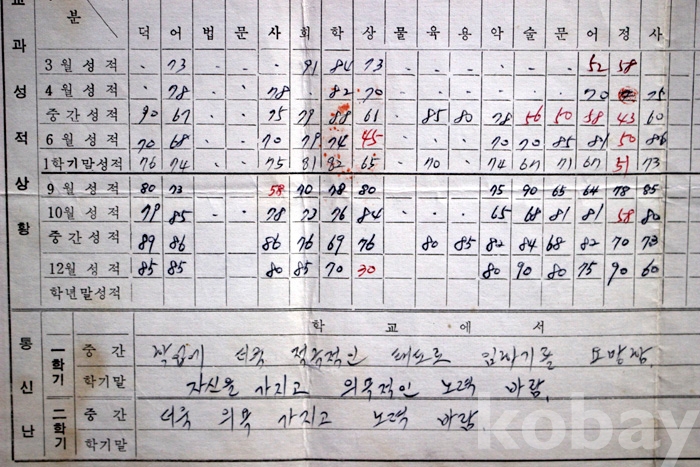 분
교과성적상황
덕 어 법 문 사 회 학 상 물 육 용 악 술 문 어 정 사
3월성적 · 73 · · · 91 84 73 · · · · · · 52 58
4월성적 · 78 · · 78 · 82 70 · · · · · · 70 75
중간성적 90 67 · · 75 79 88 61 · 85 80 78 56 50 58 43 60
6월성적 70 68 · · 70 79 74 45 · · · 70 70 85 81 50 86
1학기말성적 76 74 75 81 82 65 · 70 · 74 67 71 67 51 73
9월성적 80 73 58 70 78 80 75 90 65 64 78 85
10월성적 79 85 · · 78 73 76 84 · · · 65 68 81 81 58 80
중간성적 89 86 86 76 69 76 80 85 82 84 68 82 70 73
12월성적 85 85 80 85 70 30 80 90 80 75 90 60
학년말성적
통신난
학교에서
一학기 중간 학습에 더욱 적극적인 태도로 임하기를 요망함.
학기말 자신을 가지고 의욕적인 노력 바람.
二학기 중간 더욱 의욕 가지고 노력 바람.
학기말
kobay